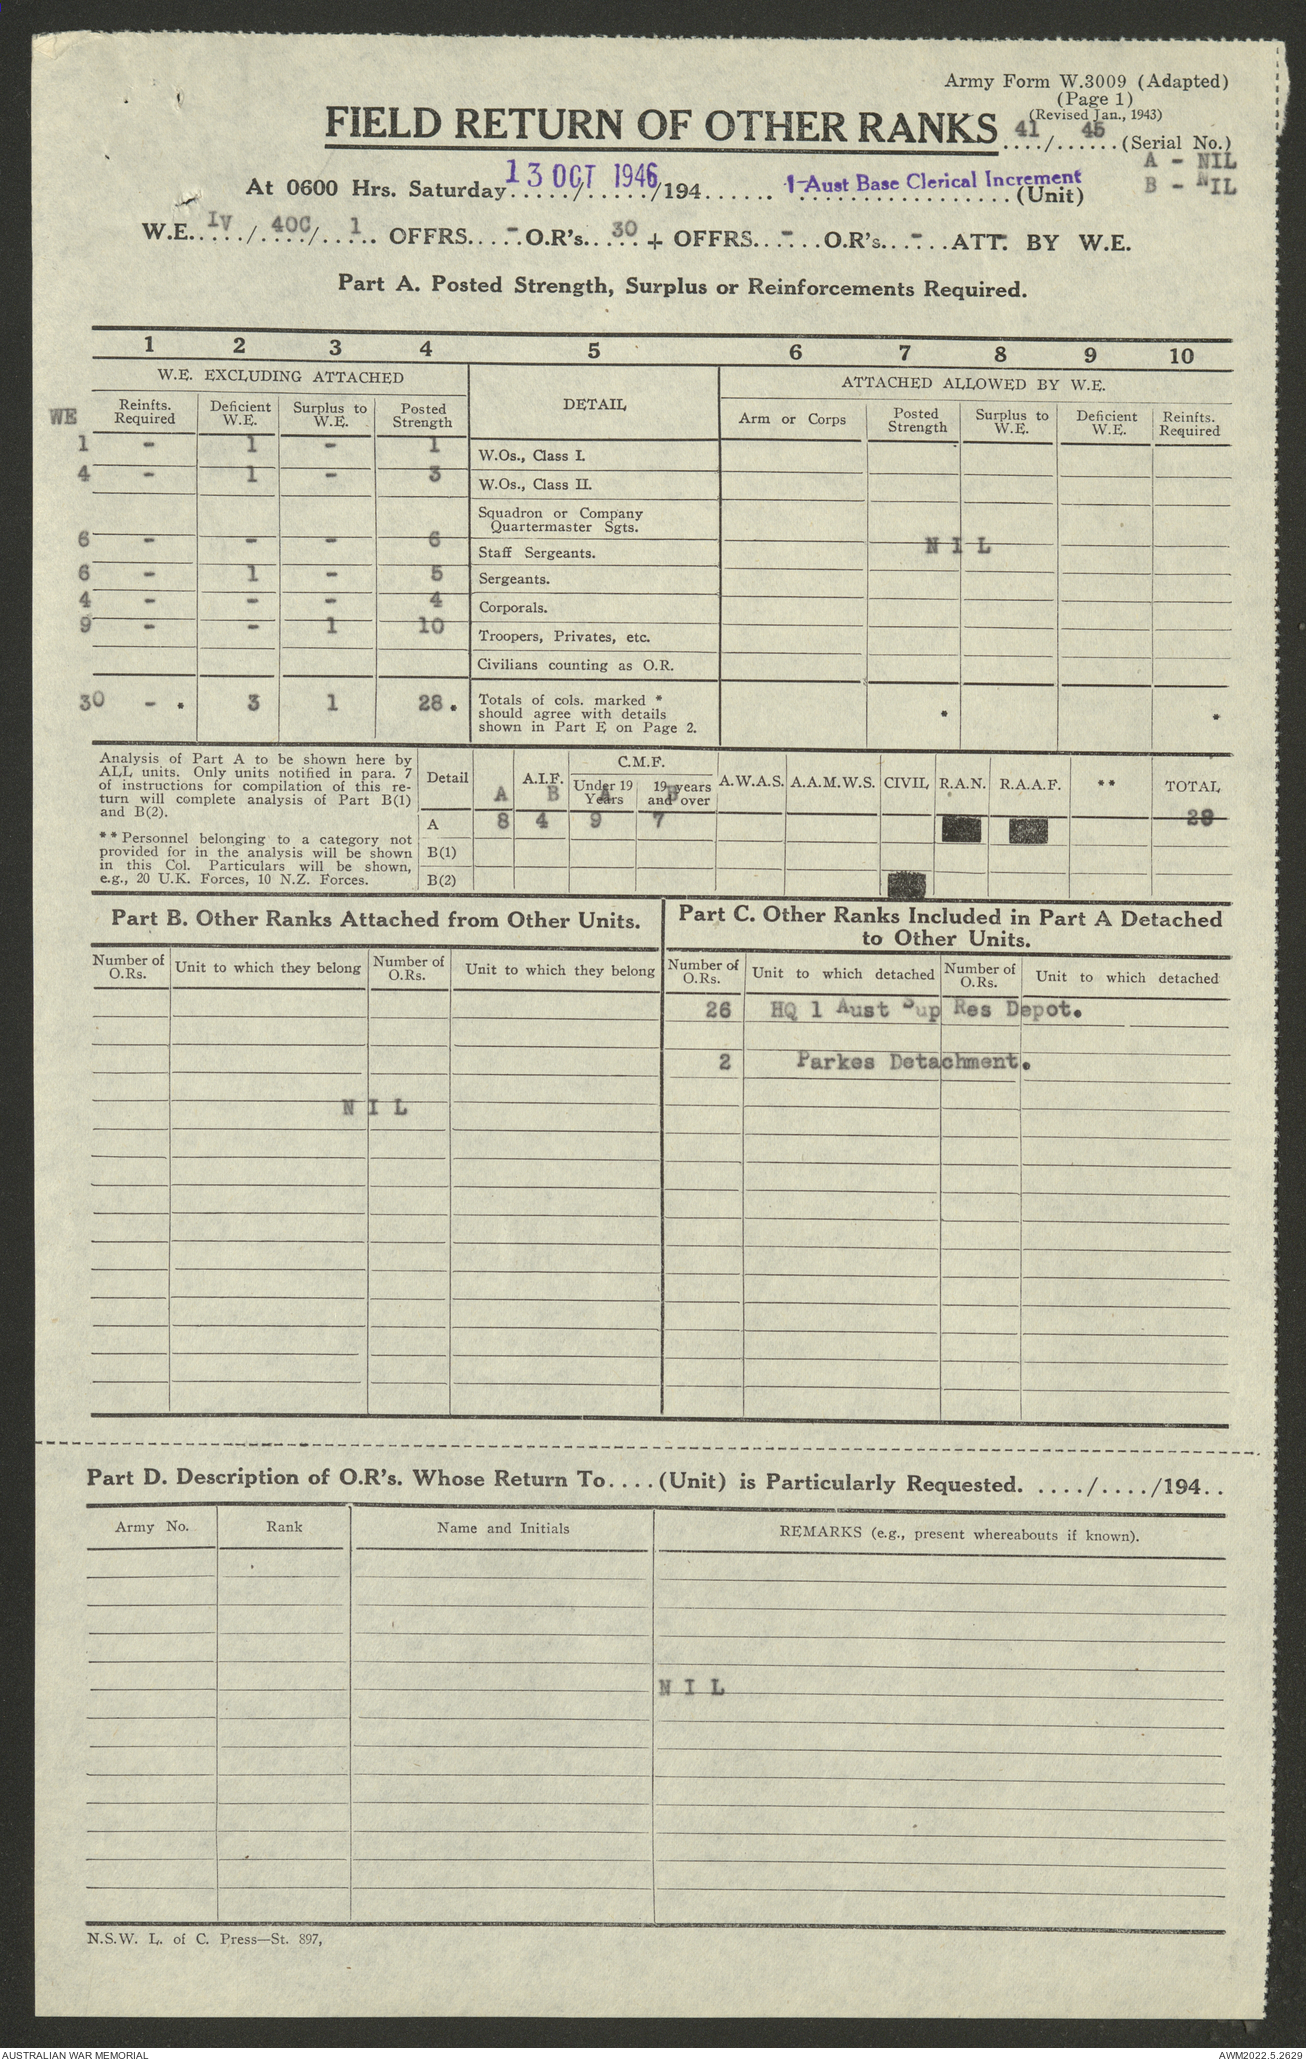 Army Form W.3009 (Adapted)
(Page 1)
(Revised Jan., 1943)
FIELD RETURN OF OTHER RANKS 41/45 (Serial No.)
A - NIL
B - NIL
At 0600 Hrs. Saturday 13 OCT 1946 /194....... 1 Aust Base Clerical Increment (Unit)
W.E. IV / 40C / 1 .. OFFRS.....-.O.R's...30 + OFFRS...-...O.R's...-...ATT. BY W.E.
Part A. Posted Strength, Surplus or Reinforcements Required.
1 2 3 4 5 6 7 8 9 10
W.E. EXCLUDING ATTACHED DETAIL ATTACHED ALLOWED BY W.E.
WE Reinfts. Required Deficient W.E. Surplus to W.E. Posted Strength Arm or Corps Posted Strength Surplus to W.E. Deficient W.E. Reinfts. Required
1 - 1 - 1 W.Os., Class I.
4 - 1 - 3 W.Os., Class II.
Squadron or Company
Quartermaster Sgts.
6 - - - 6 Staff Sergeants. NIL
6 - 1 - 5 Sergeants.
4 - - - 4 Corporals.
9 - - 1 10 Troopers, Privates, etc.
Civilians counting as O.R.
30 - * 3 1 28 * Totals of cols. marked *
should agree with details
shown in Part E on Page 2. * *
Analysis of Part A to be shown here by
ALL units. Only units notified in para. 7
of instructions for compilation of this re-
turn will complete analysis of Part B(1)
and B(2).
** Personnel belonging to a category not
provided for in the analysis will be shown
in this Col. Particulars will be shown,
e.g., 20 U.K. Forces, 10 N.Z. Forces.
Detail A.I.F. C.M.F. A.W.A.S. A.A.M.W.S. CIVIL R.A.N. R.A.A.F. ** TOTAL
A B Under 19 Years A 19 years and over B
A 8 4 9 7 28
B(1)
B(2)
Part B. Other Ranks Attached from Other Units.
Number of O.Rs. Unit to which they belong Number of O.Rs. Unit to which they belong
NIL
Part C. Other Ranks Included in Part A Detached
to Other Units.
Number of O.Rs. Unit to which detached Number of O.Rs. Unit to which detached
26 HQ 1 Aust Sup Res Depot.
2 Parkes Detachment.
Part D. Description of O.R's. Whose Return To....(Unit) is Particularly Requested. ..../..../194..
Army No. Rank Name and Initials REMARKS (e.g., present whereabouts if known).
NIL
N.S.W. L. of C. Press—St. 897,
AUSTRALIAN WAR MEMORIAL AWM2022.5.2629